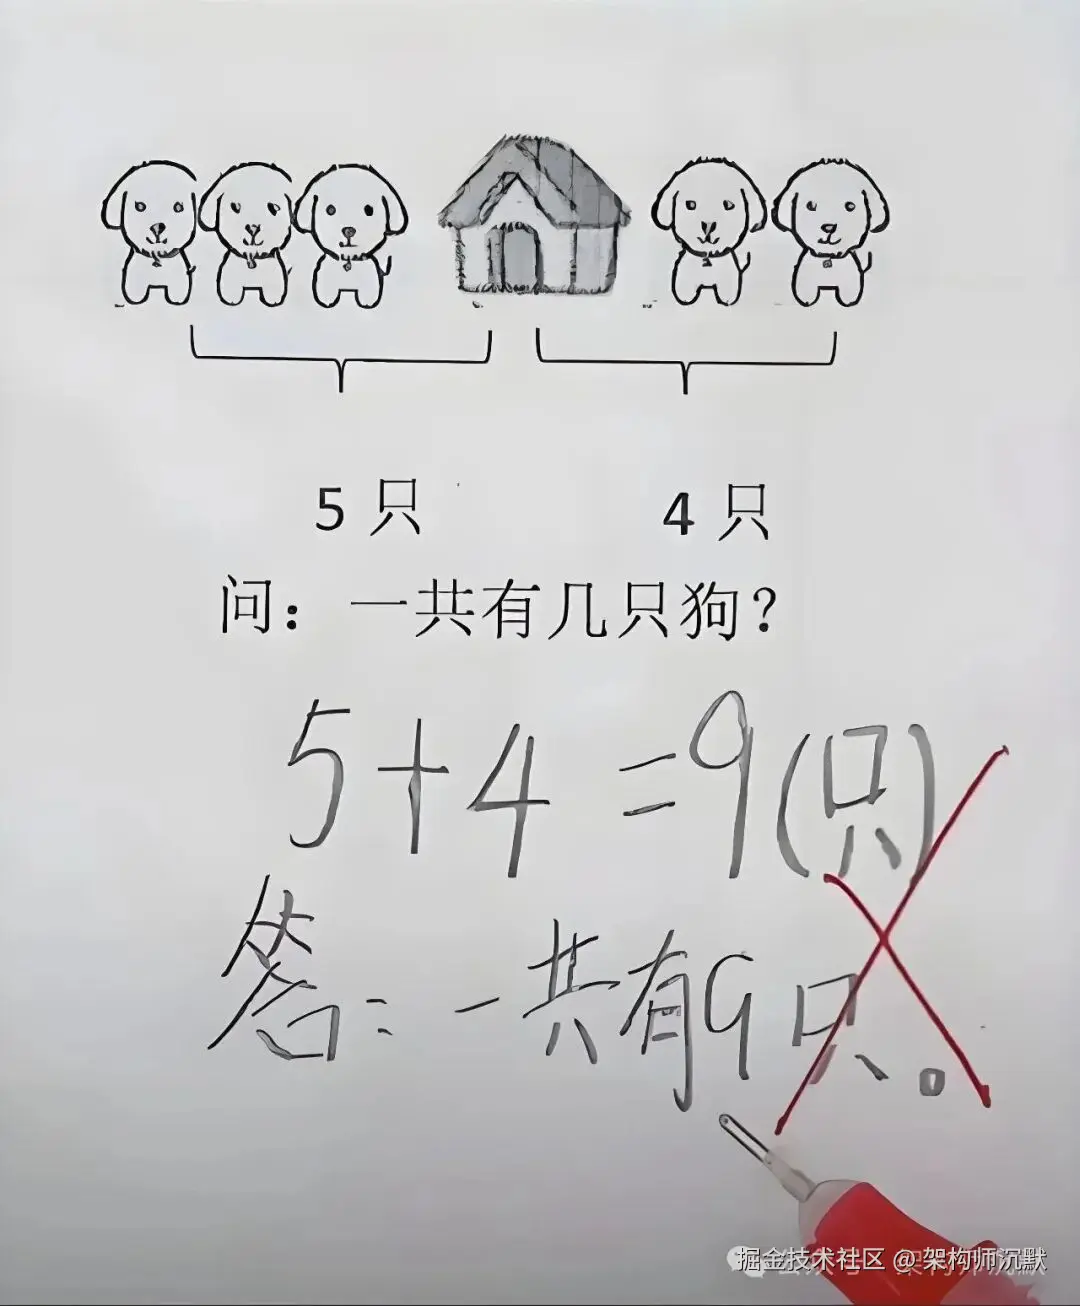 5 只 4 只
问：一共有几只狗？
5+4=9(只)
答：一共有9只。
掘金技术社区 @ 架构师沉默